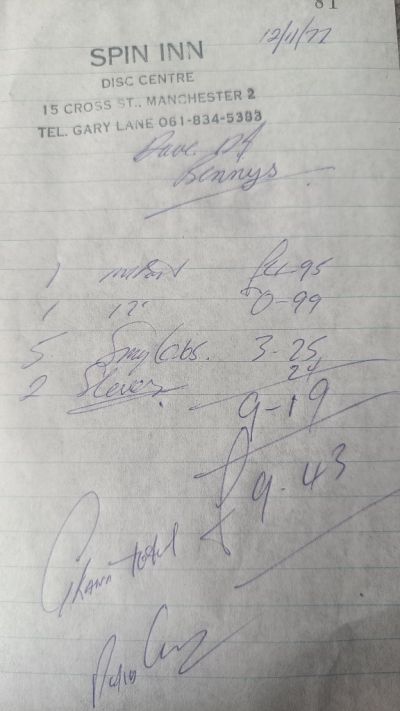 81
12/11/77
SPIN INN
DISC CENTRE
15 CROSS ST., MANCHESTER 2
TEL. GARY LANE 061-834-5383
Dave DJ
Bennys
1 £4-95
1 12" 0-99
5 Singles. 3-25
2 Sleeves 24
9-19
Grand Total £9-43
Paid